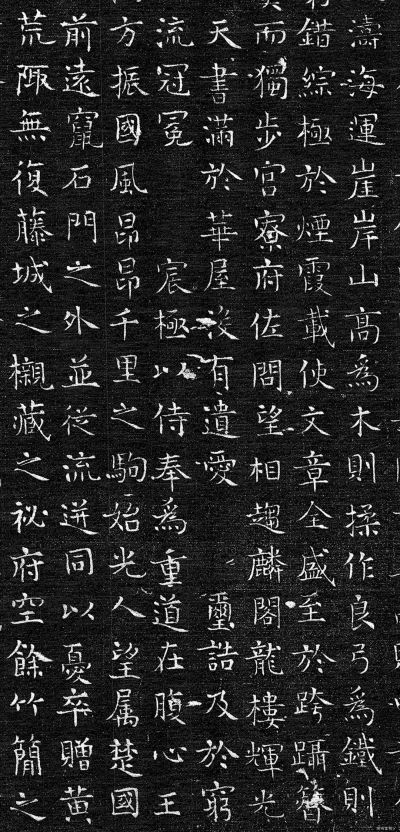 濤海運崖岸山高為木則揉作良弓為鐵則
錯綜極於煙霞載使文章全盛至於跨躡簪
而獨步官寮府佐問望相趨麟閣龍樓輝光
天書滿於華屋沒有遺愛 璽誥及於窮
流冠冕 宸極以侍奉為重道在腹心王
方振國風昂昂千里之駒始光人望属楚國
前遠竄石門之外並從流迸同以憂卒贈黃
荒陬無復藤城之櫬藏之祕府空餘竹簡之